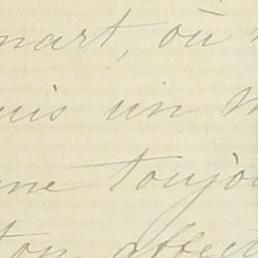 mart, où
uis un
me toujo
ton affect